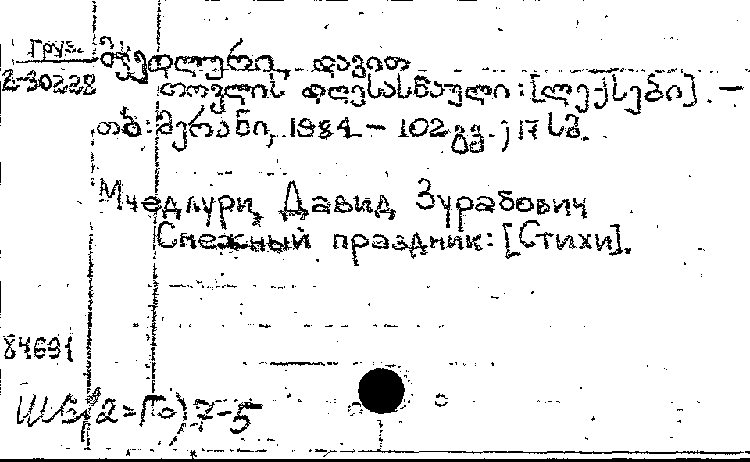 Груз.
2-30228
მჭედლური, დავით
თოვლის დღესასწაული: [ლექსები]. —
თბ.: მერანი, 1984 — 102 გვ.; 17 სმ.
Мчедлури, Давид Зурабович
Снежный праздник: [Стихи].
84691